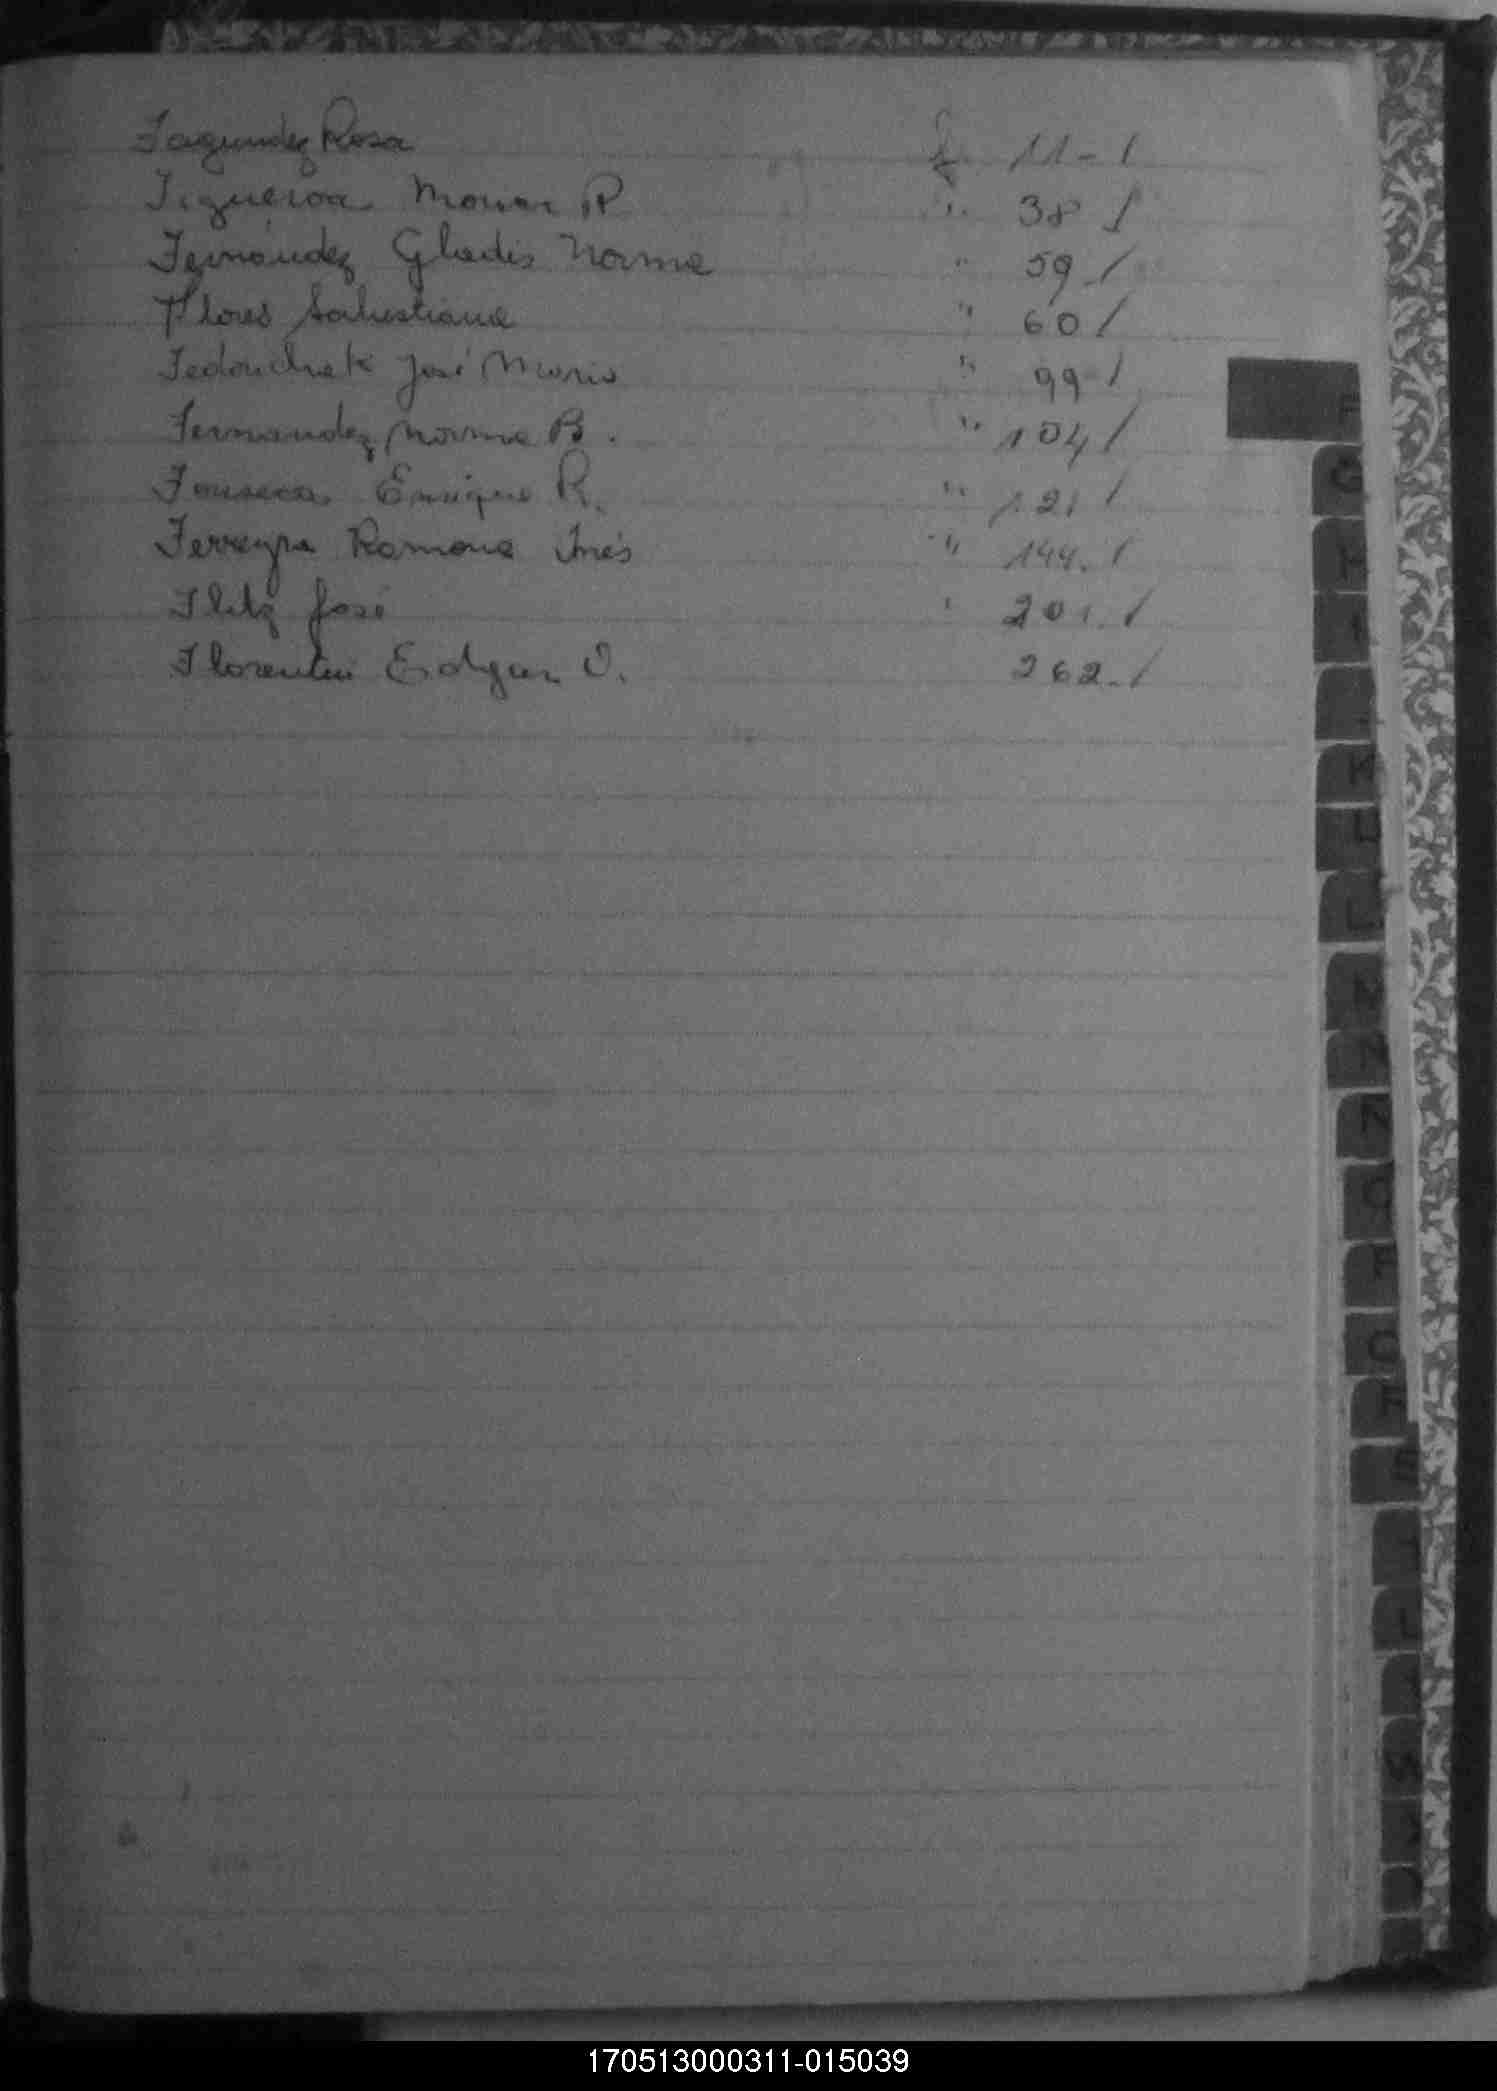 Fagundez Rosa f. 11-/
Figueroa Monar R " 38 /
Fernández Gladis Norma " 59-/
Flores Salustiana " 60 /
Fedonchek José Mario " 99-/
Fernandez Norma B. " 104 /
Fonseca Enrique R. " 121 /
Ferreyra Ramona Inés " 144. /
Flitz José " 201. /
Florentin Edgar O. 262-/
F
G
H
I
K
L
N
170513000311-015039